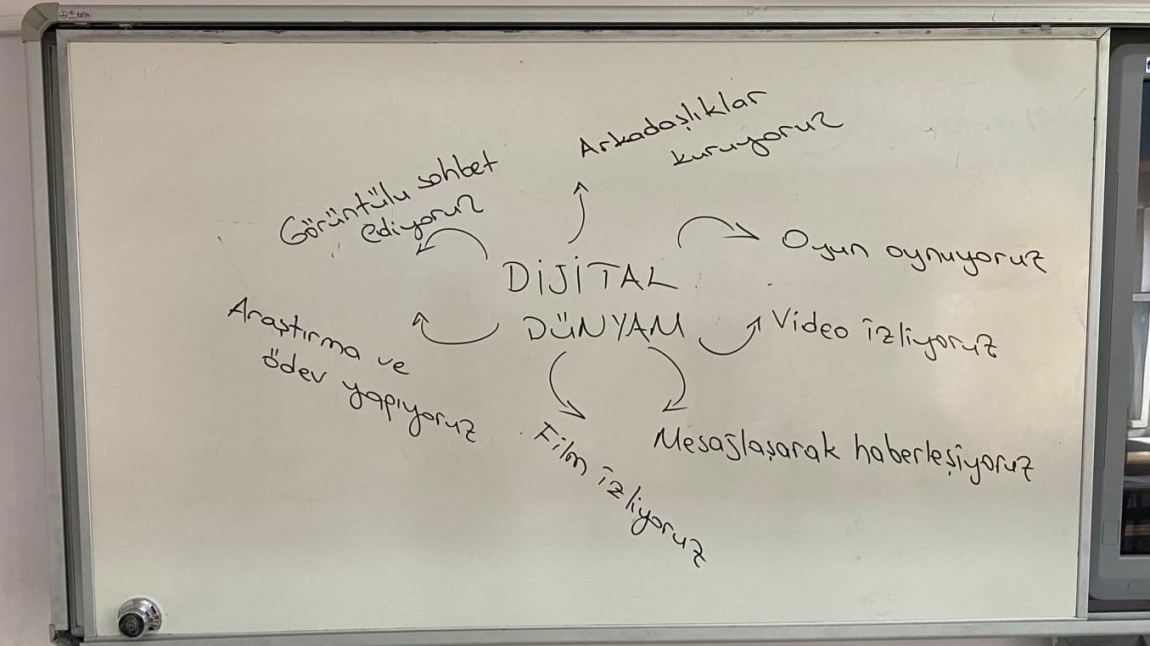 Arkadaşlıklar
kuruyoruz
Görüntülü sohbet
ediyoruz
Oyun oynuyoruz
DİJİTAL
DÜNYAM
Video izliyoruz
Araştırma ve
ödev yapıyoruz
Film izliyoruz
Mesajlaşarak haberleşiyoruz